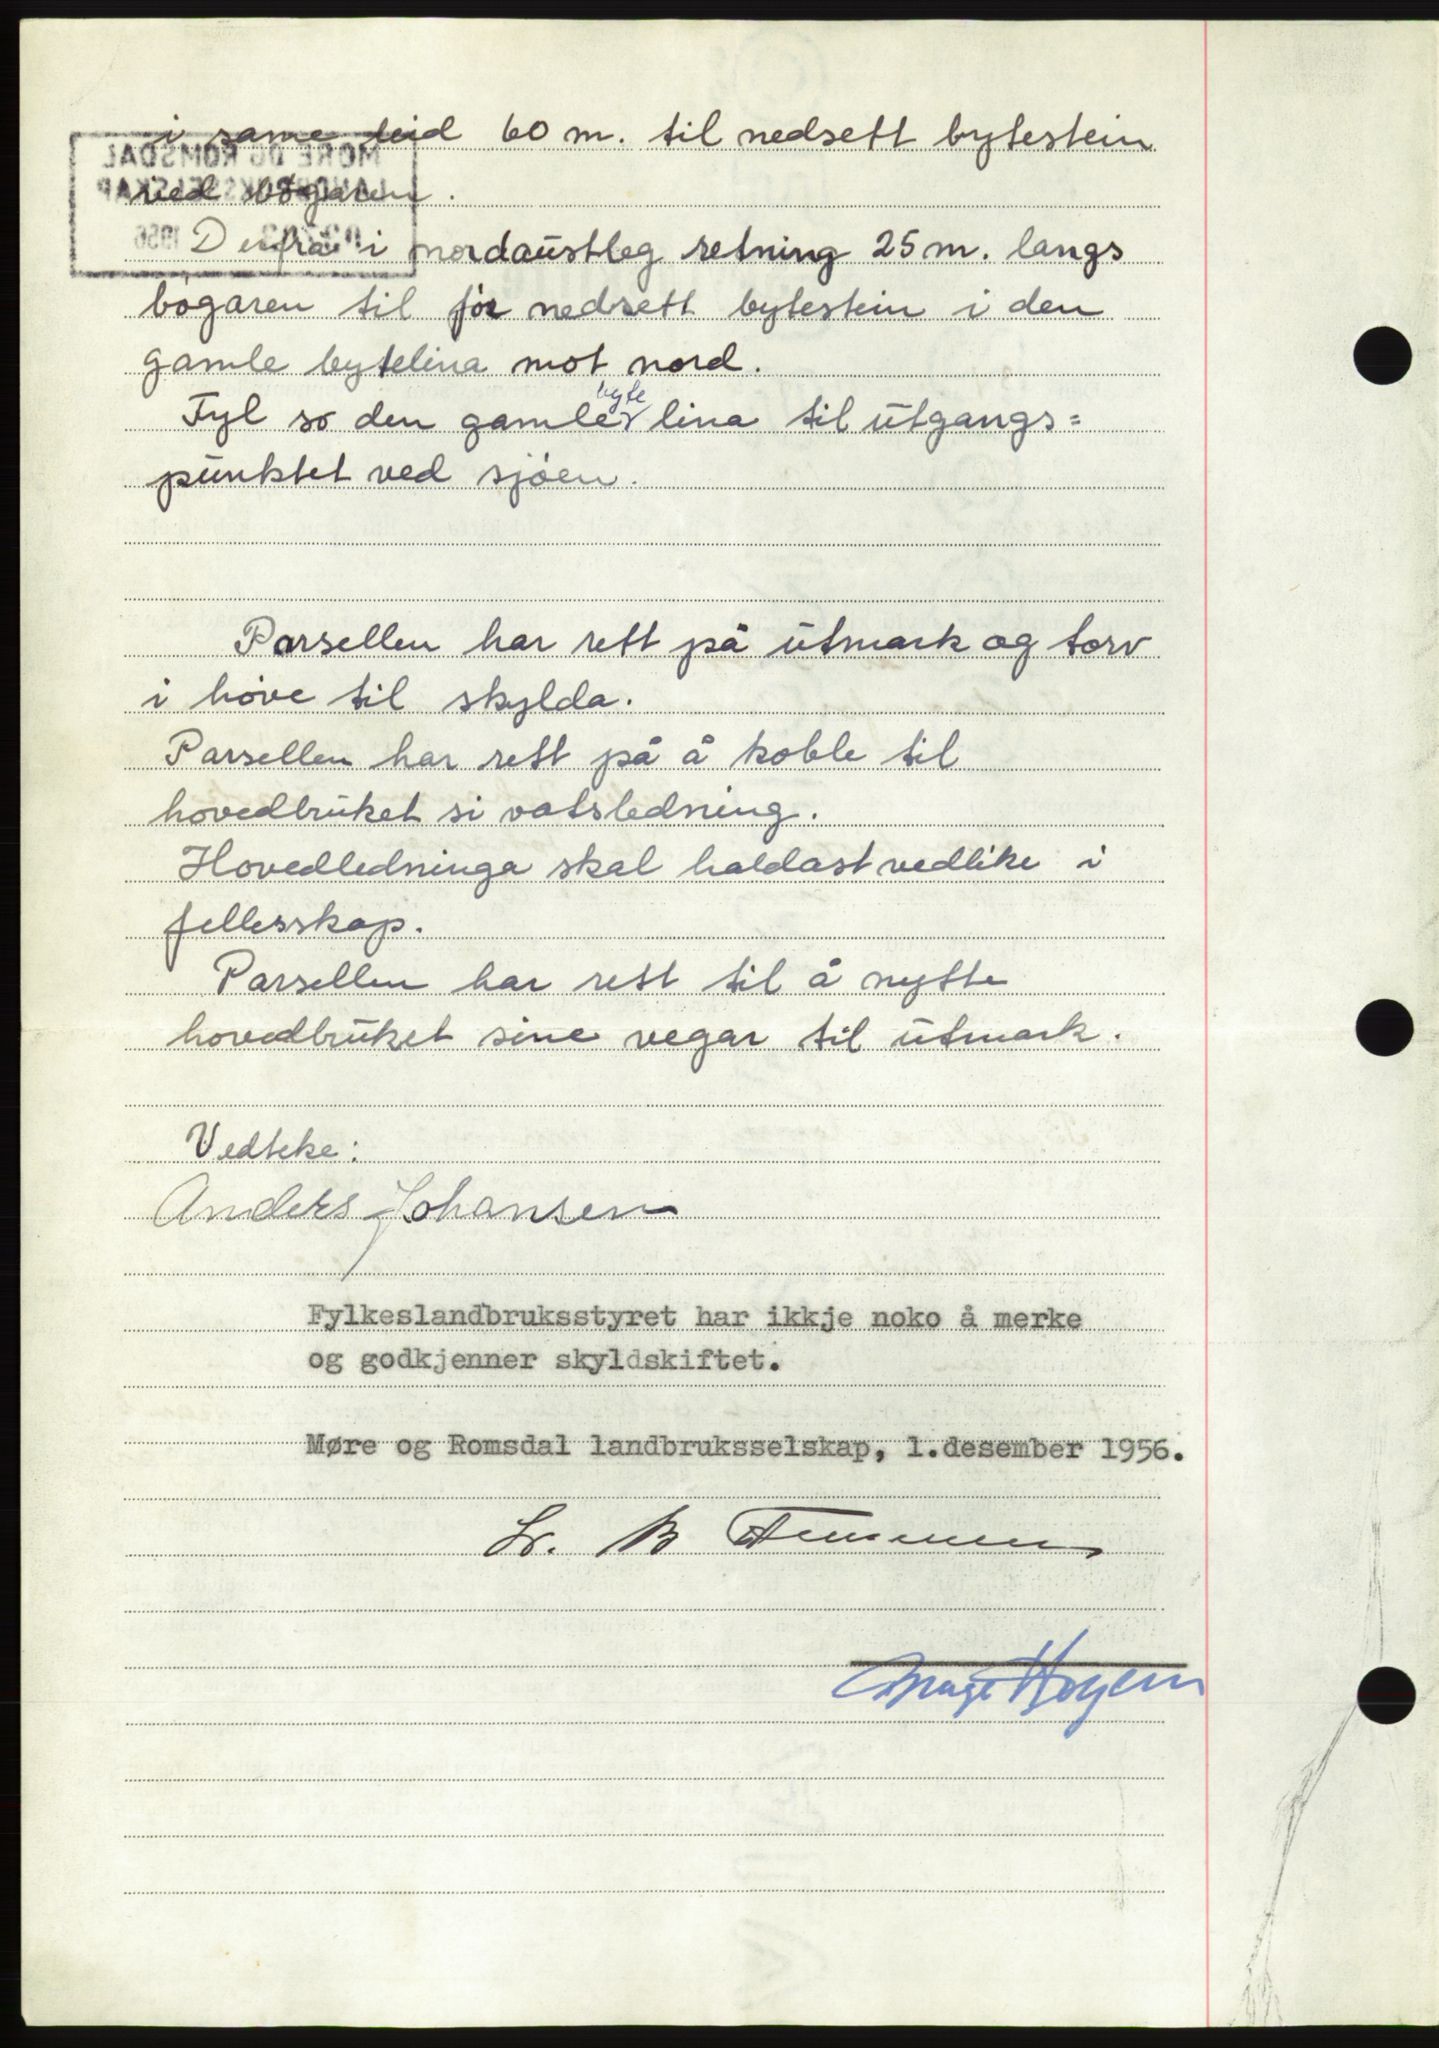 i same leid 60 m. til nedsett bytestein
ved bøgaren.
Derfra i nordaustleg retning 25 m. langs
bøgaren til før nedsett bytestein i den
gamle bytelina mot nord.
Fyl so den gamle byte lina til utgangs=
punktet ved sjøen.
Parsellen har rett på utmark og torv
i høve til skylda.
Parsellen har rett på å koble til
hovedbruket si vatsledning.
Hovedledninga skal haldast vedlike i
fellesskap.
Parsellen har rett til å nytte
hovedbruket sine vegar til utmark.
Vedteke:
Anders Johansen
Fylkeslandbruksstyret har ikkje noko å merke
og godkjenner skyldskiftet.
Møre og Romsdal landbruksselskap, 1.desember 1956.
MØRE OG ROMSDAL
LANDBRUKSSELSKAP
1956